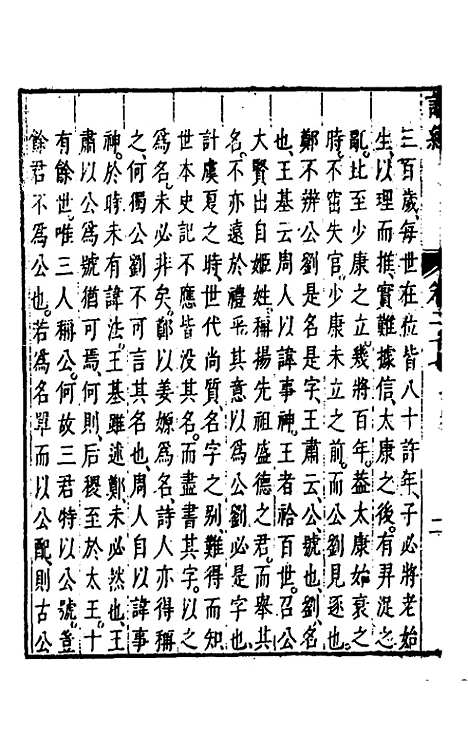 三百歲每世在位皆八十許年子必將老始
生以理而推實難據信太康之後有羿浞之
亂比至少康之立幾將百年葢太康始衰之
時不窋失官少康未立之前而公劉見逐也
鄭不辨公劉是名是字王肅云公號也劉名
也王基云周人以諱事神王者祫百世召公
大賢出自姬姓稱揚先祖盛德之君而舉其
名不亦遠於禮乎其意以爲公劉必是字也
計虞夏之時世代尚質名字之别難得而知
世本史記不應皆没其名而盡書其字以之
爲名未必非矣鄭以姜嫄爲名詩人亦得稱
之何獨公劉不可言其名也周人自以諱事
神於時未有諱法王基雖述鄭未必然也王
肅以公爲號猶可焉何則后稷至於太王十
有餘世唯三人稱公何故三君特以公號豈
餘君不爲公也若爲名單而以公配則古公